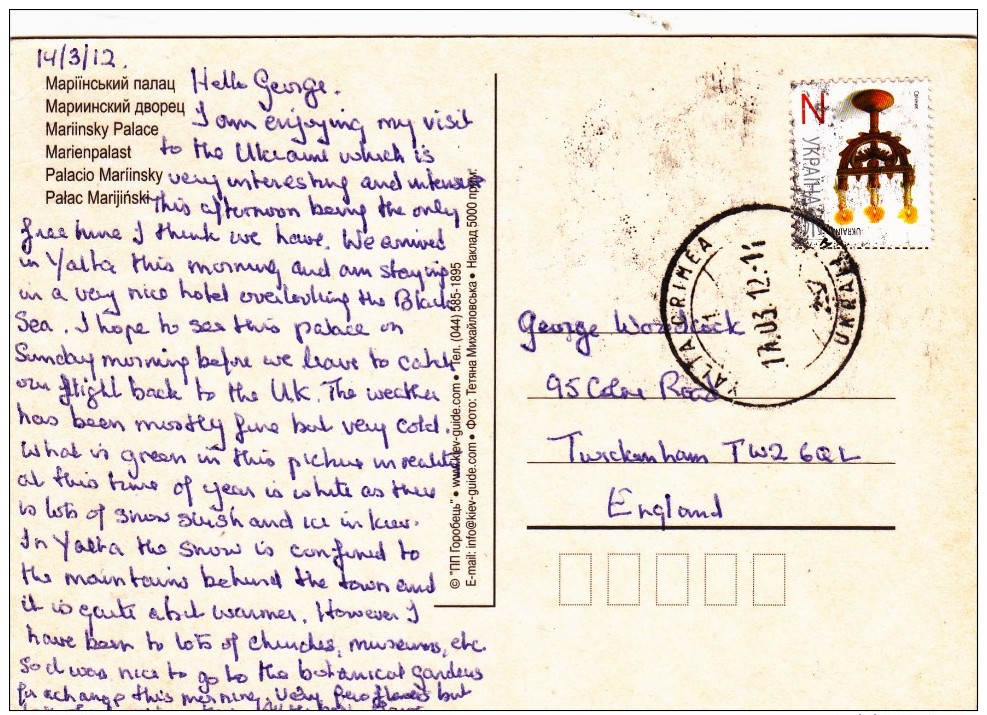 14/3/12.
Маріїнський палац
Мариинский дворец
Mariinsky Palace
Marienpalast
Palacio Mariinsky
Pałac Marijiński
Hello George.
I am enjoying my visit
to the Ukraine which is
very interesting and intensive
This afternoon being the only
free time I think we have. We arrived
in Yalta this morning and am staying
in a very nice hotel overlooking the Black
Sea. I hope to see this palace on
Sunday morning before we leave to catch
our flight back to the UK. The weather
has been mostly fine but very cold.
What is green in this picture in reality
at this time of year is white as there
is lots of snow slush and ice in Kiev.
In Yalta the snow is confined to
the mountains behind the town and
it is quite a bit warmer. However I
have been to lots of churches, museums, etc.
so it was nice to go to the botanical gardens
for a change this morning. Very few flowers but
© "ПП Горобець" • www.kiev-guide.com • Тел. (044) 585-1895
E-mail: info@kiev-guide.com • Фото: Тетяна Михайловська • Наклад 5000 прим.
N
УКРАЇНА
UKRAINE
YALTA CRIMEA
UKRAINE
12-14
George Woodcock
95 Road
Twickenham TW2 6QL
England